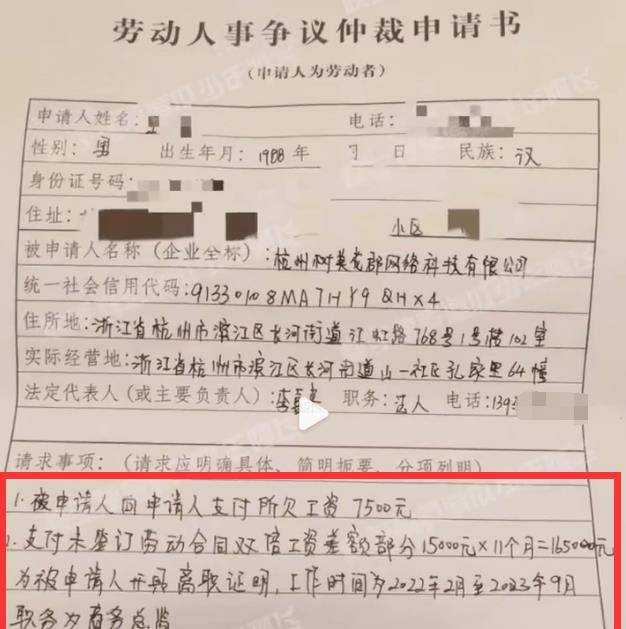 劳动人事争议仲裁申请书
（申请人为劳动者）
申请人姓名： 电话：
性别：男 出生年月：1988年 月 日 民族：汉
身份证号码：
住址： 小区
被申请人名称（企业全称）：杭州树美龙郡网络科技有限公司
统一社会信用代码：91330108MA7HY9QHX4
住所地：浙江省杭州市滨江区长河街道江虹路768号1号楼102室
实际经营地：浙江省杭州市滨江区长河街道山一社区孔家里64幢
法定代表人（或主要负责人）：李 职务：法人 电话：1393
请求事项：（请求应明确具体、简明扼要、分项列明）
1.被申请人向申请人支付所欠工资7500元
2.支付未签订劳动合同双倍工资差额部分15000元×11个月=165000元
为被申请人开具离职证明，工作时间为2022年2月至2023年9月
职务为商务总监